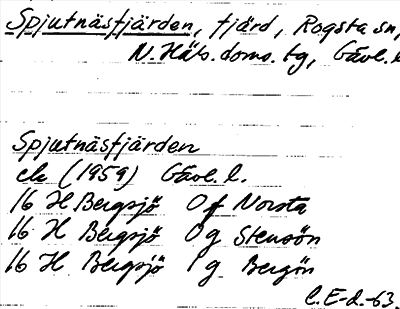 Spjutnäsfjärden, fjärd, Rogsta sn,
N. Häls. doms. tg, Gävl. l.
Spjutnäsfjärden
ek (1959) Gävl. l.
16 H Bergsjö 0 f Norsta
16 H Bergsjö 0 g Stensön
16 H Bergsjö 1 g Bergön
C. E-d. -63.